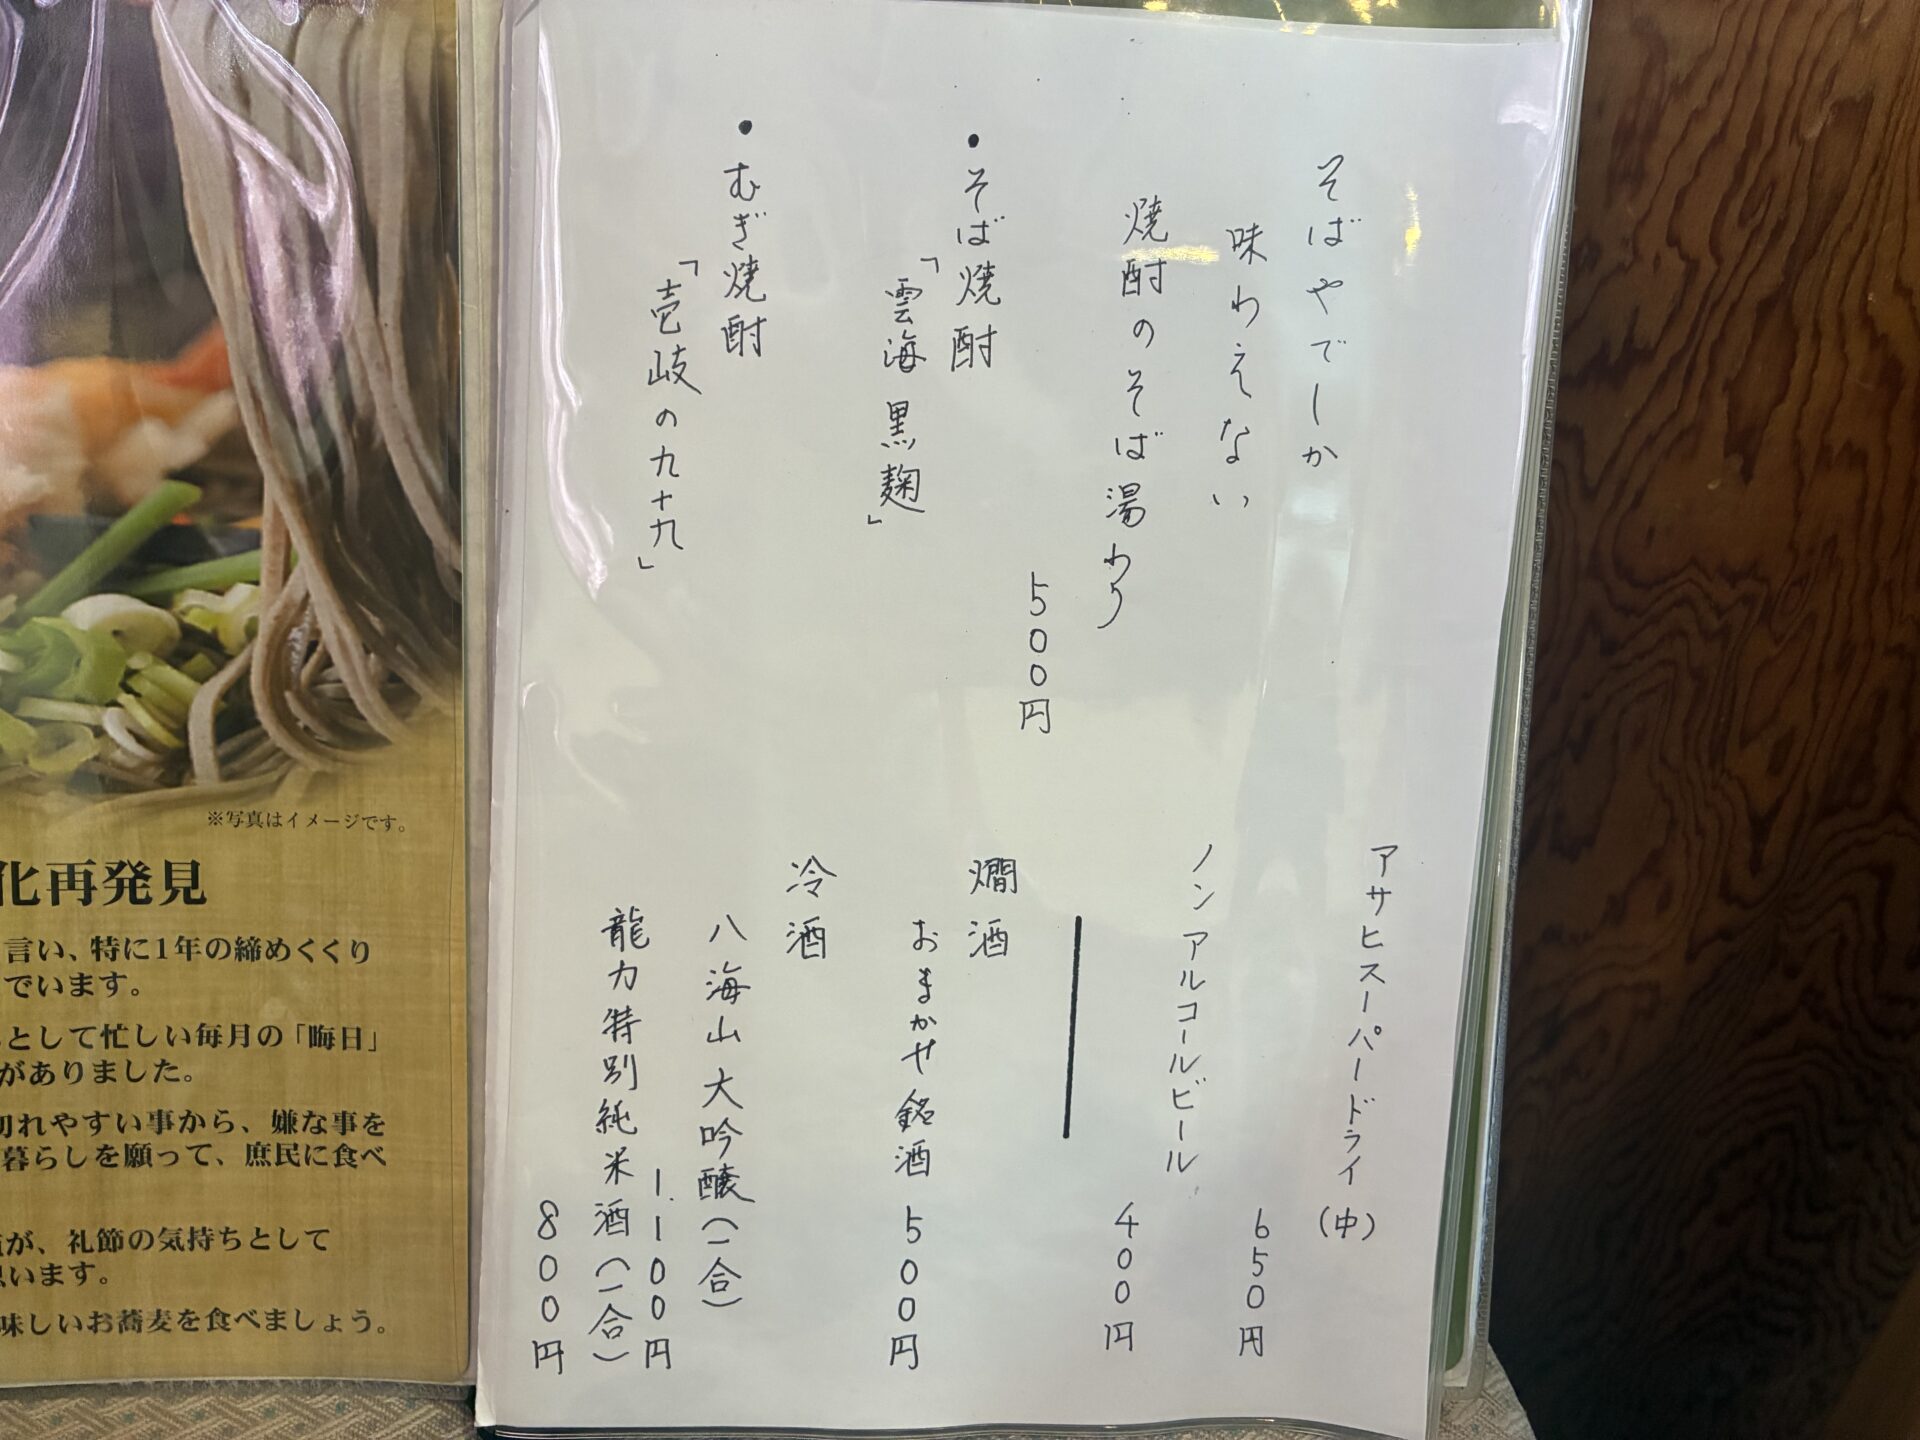 そばやでしか
味わえない
焼酎のそば湯わり
500円
・そば焼酎
「雲海 黒麹」
・むぎ焼酎
「壱岐の九十九」
アサヒスーパードライ(中)
650円
ノンアルコールビール
400円
燗酒
おまかせ銘酒 500円
冷酒
八海山大吟醸(一合)
1.100円
龍力特別純米酒(一合)
800円
※写真はイメージです。
化再発見
言い、特に1年の締めくくり
でいます。
として忙しい毎月の「晦日」
がありました。
切れやすい事から、嫌な事を
暮らしを願って、庶民に食べ
が、礼節の気持ちとして
思います。
味しいお蕎麦を食べましょう。